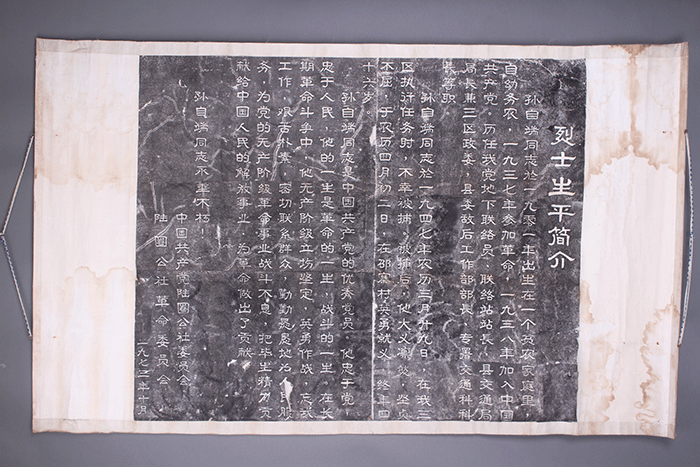 烈士生平简介
孙自端同志於一九零一年出生在一个贫农家庭里，
自幼务农，一九三七年参加革命，一九三八年加入中国
共产党，历任我党地下联络员，联络站站长，县交通局
局长兼三区政委，县委敌后工作部部长，专署交通科科
长等职
孙自端同志於一九四七年农历三月廿九日，在我三
区执行任务时，不幸被捕，被捕后，他大义凛然，坚贞
不屈，于农历四月初二日，在邵寨村英勇就义，终年四
十六岁
孙自端同志是中国共产党的优秀党员，他忠于党，
忠于人民，他的一生是革命的一生，战斗的一生，在长
期革命斗争中，他无产阶级立场坚定，英勇作战，忘我
工作，艰苦朴素，密切联系群众，勤勤恳恳地为人民服
务，为党的无产阶级革命事业战斗不息，把毕生精力贡
献给中国人民的解放事业，为革命做出了贡献
孙自端同志永垂不朽！
中国共产党陆圈公社委员会
陆圈公社革命委员会
一九七三年十月